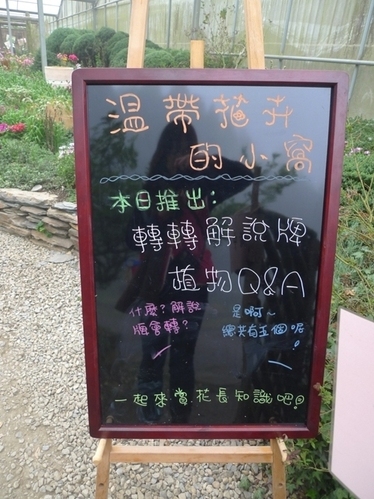 溫帶花卉
的小窩
本日推出:
轉轉解說牌
植物Q&A
什麼?解說
牌會轉?
是啊~
總共有五個呢!
一起來賞花長知識吧!